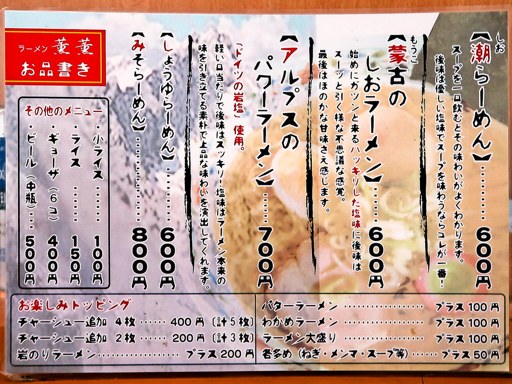 ラーメン 薫薫
お品書き
しお
【潮らーめん】……600円
スープを一口飲むとその味わいがよくわかります。
後味は優しい塩味でスープを味わうならコレが一番!
もうこ
【蒙古の
しおラーメン】……600円
始めにガツンと来るハッキリした塩味に後味は
スーッと引く様な不思議な感覚。
最後はほのかな甘味さえ感じます。
【アルプスの
パクーラーメン】……700円
「ドイツの岩塩」使用。
軽い口当たりで後味はスッキリ!塩味はラーメン本来の
味を引き立てる素朴で上品な味わいを演出してくれます。
【しょうゆらーめん】…600円
【みそらーめん】………800円
その他のメニュー
・小ライス 100円
・ライス 150円
・ギョーザ(6コ) 400円
・ビール(中瓶) 500円
お楽しみトッピング
チャーシュー追加 4枚 ……… 400円 (計5枚)
チャーシュー追加 2枚 ……… 200円 (計3枚)
岩のりラーメン ……… プラス 200円
バターラーメン ……… プラス 100円
わかめラーメン ……… プラス 100円
ラーメン大盛り ……… プラス 100円
各多め (ねぎ・メンマ・スープ等) … プラス 50円